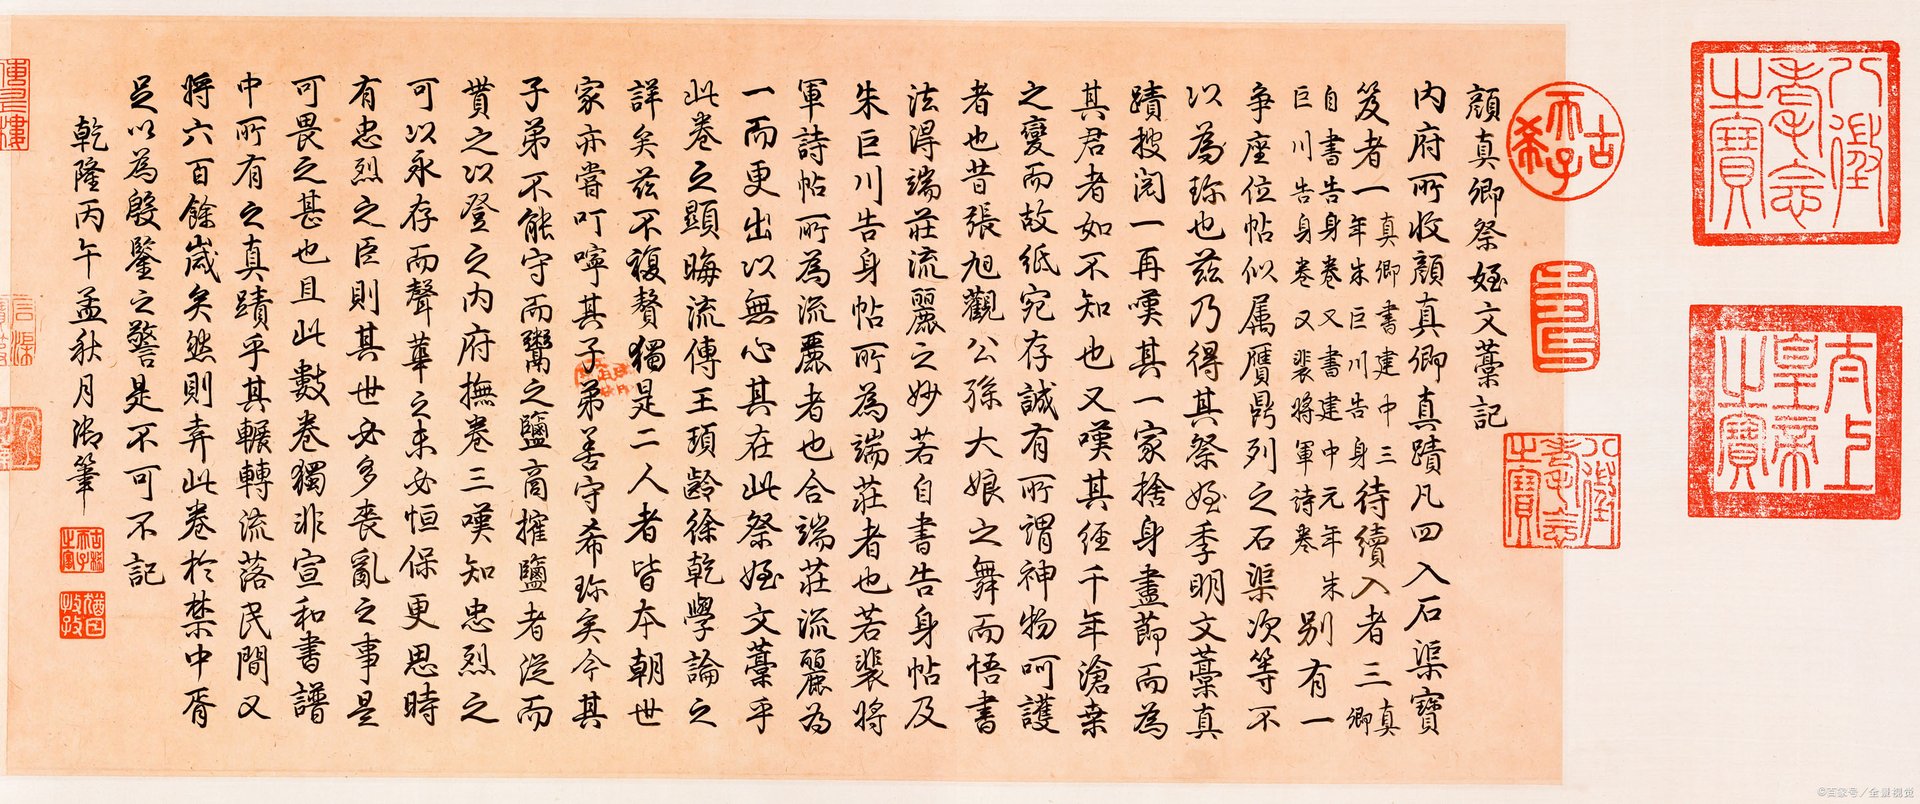 八徵耄念之寶
太上皇帝之寶
古希天子
壽
八徵耄念之寶
顏真卿祭姪文藁記
內府所收顏真卿真蹟凡四入石渠寶
笈者一真卿書建中三年朱巨川告身待續入者三真卿
自書告身卷又書建中元年朱巨川告身卷又裴將軍詩卷別有一
爭座位帖似属贋鼎列之石渠次等不
以為珍也茲乃得其祭姪季明文藁真
蹟披閱一再嘆其一家捨身盡節而為
其君者如不知也又嘆其經千年滄桑
之變而故紙宛存誠有所謂神物呵護
者也昔張旭觀公孫大娘之舞而悟書
法得端莊流麗之妙若自書告身帖及
朱巨川告身帖所為端莊者也若裴將
軍詩帖所為流麗者也合端莊流麗為
一而更出以無心其在此祭姪文藁乎
此卷之顯晦流傳王頊齡徐乾學論之
詳矣茲不複贅獨是二人者皆本朝世
家亦嘗叮嚀其子弟善守希珍矣今其
子弟不能守而鬻之鹽商搉鹽者從而
貰之以登之內府撫卷三嘆知忠烈之
可以永存而聲華之未必恒保更思時
有忠烈之臣則其世必多喪亂之事是
可畏之甚也且此數卷獨非宣和書譜
中所有之真蹟乎其輾轉流落民間又
將六百餘歲矣然則弆此卷於禁中胥
足以為殷鑒之警是不可不記
乾隆丙午孟秋月御筆
古稀天子之寶
猶日孜孜
©百家号／全景视觉